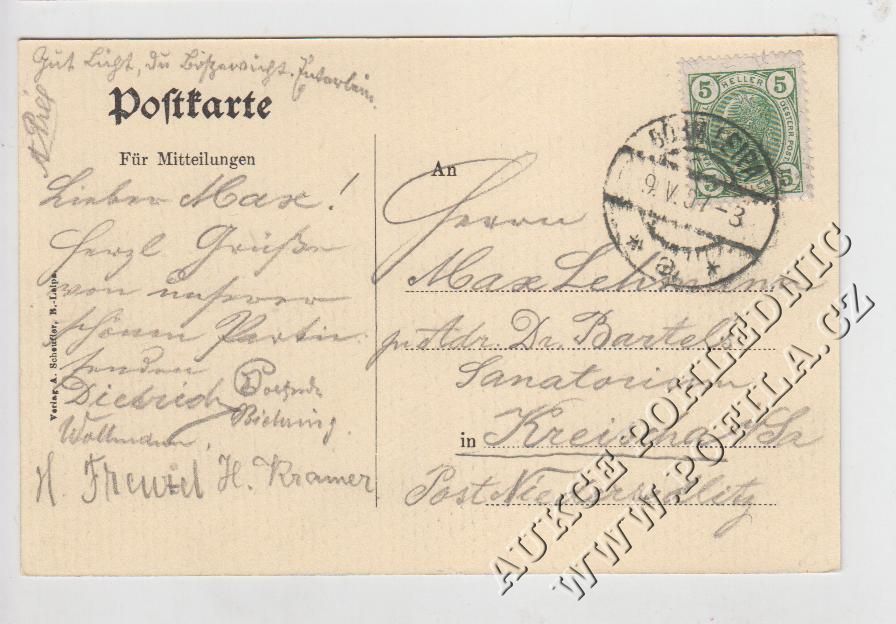 Gut Licht, du Bösewicht.
Postkarte
Für Mitteilungen
Lieber Max!
Herzl. Grüße
von unserer
schönen Partie
senden
Dietrich
Biehring
Wollmann
H. Frenzel H. Kramer
Verlag A. Scheuffler, B.-Leipa.
An
Herrn
Max Lehmann
p. Adr. Dr. Bartels
Sanatorium
in Kreischa i/Sa
Post Niedersedlitz
5 HELLER 5
OESTERR. POST
5 5
9.V.07-3
AUKCE POHLEDNIC
WWW.POFILA.CZ